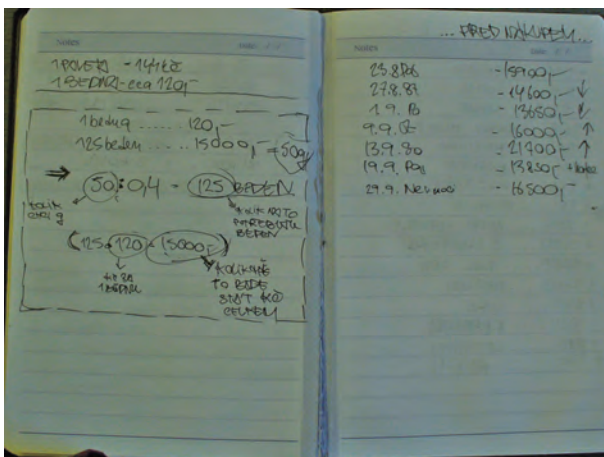 Notes
1 BEDNA - cca 120,-
1 bedna ...... 120,-
125 beden ..... 15000,- = 50g
⇒ 50 : 0,4 - 125 BEDEN
KOLIK
CHCI g
KOLIK NA TO
POTREBUJU
BEDEN
(125 · 120 = 15000,-)
KČ ZA
1 BEDNU
KOLIK MĚ
TO BUDE
STÁT KČ
CELKEM
... PŘED NÁKUPEM ...
Notes
23.8. - 15900,-
27.8. - 14600,- ↓
1.9. - 13650,-
9.9. - 16000,- ↑
13.9. - 21700,- ↑
19.9. - 13850,-
29.9. - 16500,-